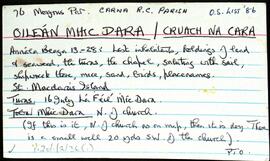 76 Megyns Pt: CARNA R.C. PARISH O.S. LIST '86
OILEÁN MHIC DARA / CRUACH NA CARA
13-28: Last inhabitants, holdings of land
& seaweed, the turas, the chapel, saluting with sail,
shipwreck there, mice, sand, birds, placenames.
St. Macdara's Island
Turas: 16 July Lá Féile Mhic Dara
Tobar Mhic Dara N. of church.
(If this is it, N. of church as on map, then it is dry. There
is a small well 20 yds SW of the church.)
P.T.O